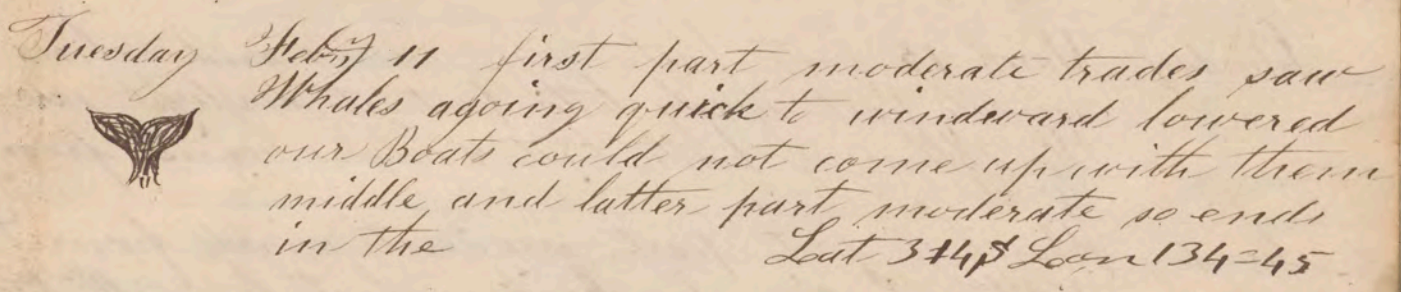 Tuesday Feby 11 first part moderate trades saw
Whales agoing quick to windward lowered
our Boats could not come up with them
middle and latter part moderate so ends
in the Lat 3 Lon 134=45